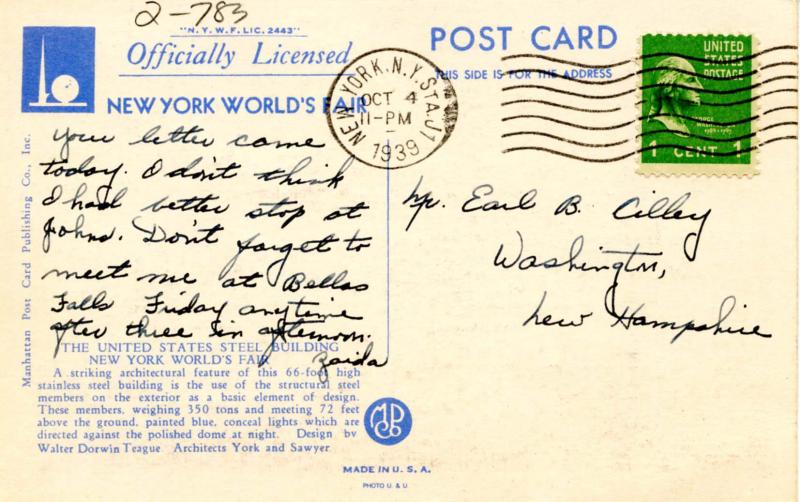 2-783
"N.Y.W.F. LIC. 2443"
Officially Licensed
NEW YORK WORLD'S FAIR
POST CARD
THIS SIDE IS FOR THE ADDRESS
NEW YORK, N.Y. STA. J1
OCT 4
11-PM
1939
UNITED
STATES
POSTAGE
GEORGE
WASHINGTON
1 CENT 1
Your letter came
today. I don't think
I had better stop at
Johns. Don't forget to
meet me at Bellos
Falls Friday anytime
after three in afternoon.
Zaida
Mr. Earl B. Cilley
Washington,
New Hampshire
Manhattan Post Card Publishing Co., Inc.
THE UNITED STATES STEEL BUILDING
NEW YORK WORLD'S FAIR
A striking architectural feature of this 66-foot high
stainless steel building is the use of the structural steel
members on the exterior as a basic element of design.
These members, weighing 350 tons and meeting 72 feet
above the ground, painted blue, conceal lights which are
directed against the polished dome at night. Design by
Walter Dorwin Teague Architects York and Sawyer
MADE IN U.S.A.
PHOTO U. & U.